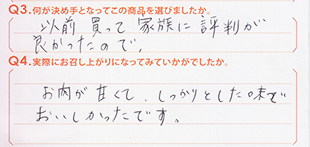 Q3.何が決め手となってこの商品を選びましたか。
以前買って家族に評判が
良かったので,
Q4.実際にお召し上がりになってみていかがでしたか。
お肉が甘くて、しっかりとした味で
おいしかったです。